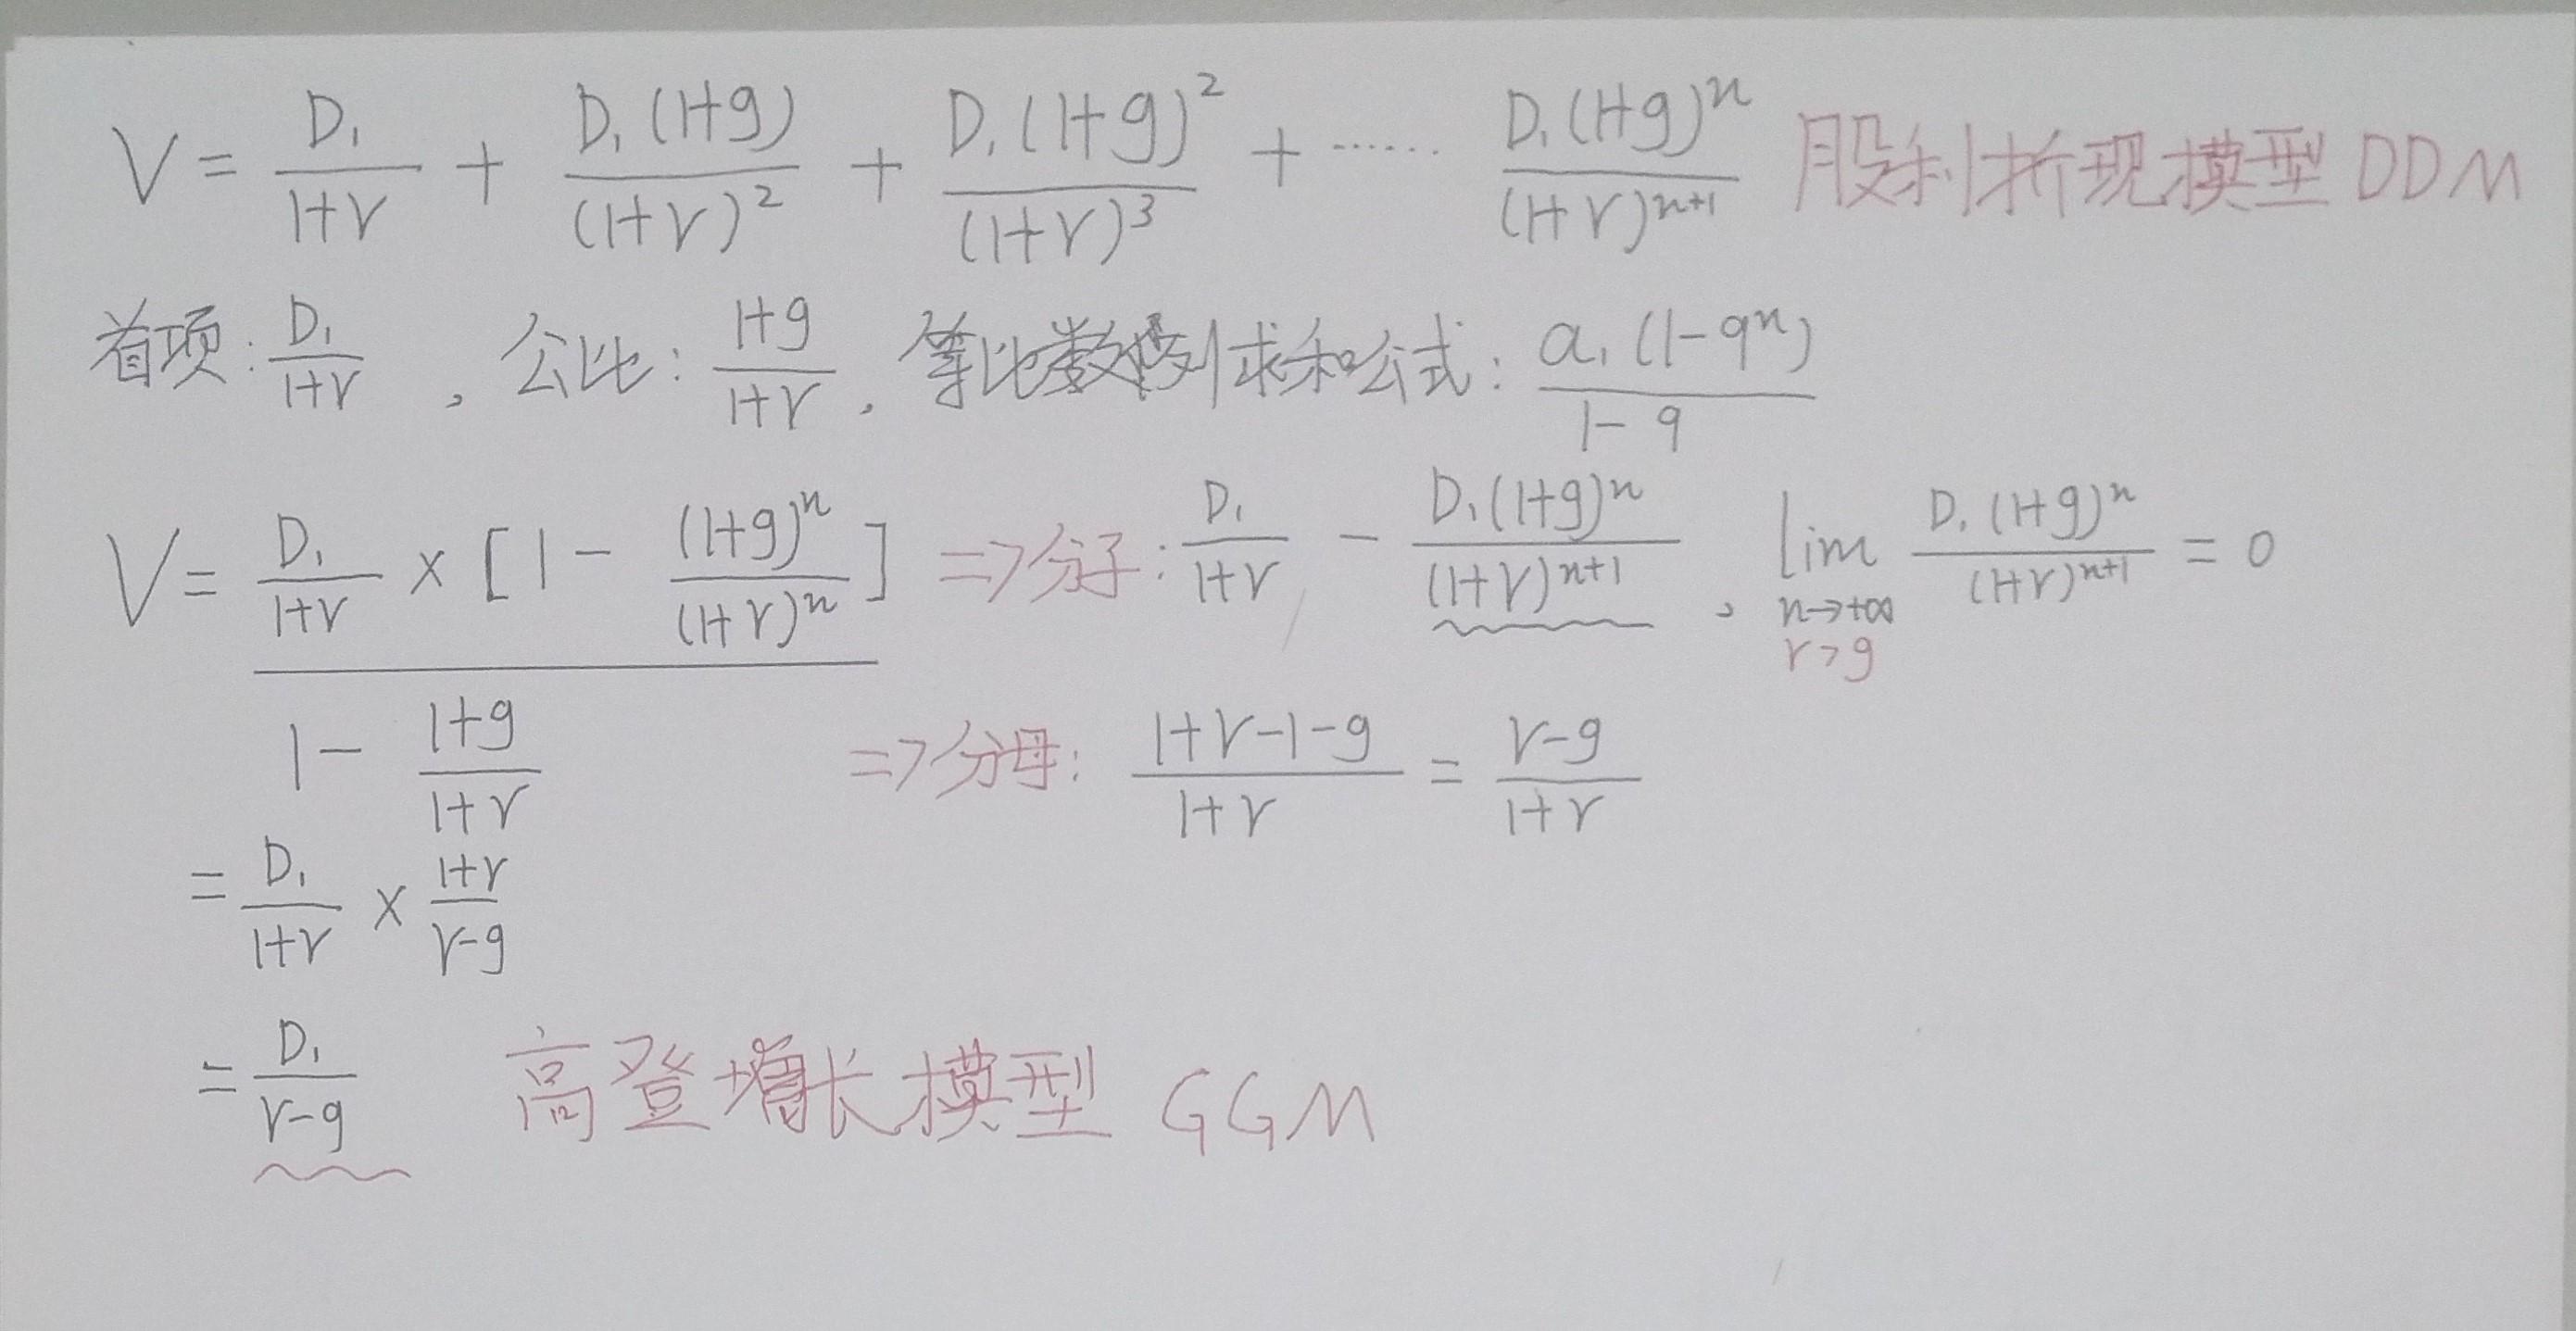 V = D₁/(1+r) + D₁(1+g)/(1+r)² + D₁(1+g)²/(1+r)³ + …… D₁(1+g)ⁿ/(1+r)ⁿ⁺¹ 股利折现模型 DDM
首项: D₁/(1+r) , 公比: (1+g)/(1+r) , 等比数列求和公式: a₁(1-qⁿ)/(1-q)
V = D₁/(1+r) × [1 - (1+g)ⁿ/(1+r)ⁿ] => 分子: D₁/(1+r) - D₁(1+g)ⁿ/(1+r)ⁿ⁺¹ , lim n→+∞ r>g D₁(1+g)ⁿ/(1+r)ⁿ⁺¹ = 0
1 - (1+g)/(1+r) => 分母: (1+r-1-g)/(1+r) = (r-g)/(1+r)
= D₁/(1+r) × (1+r)/(r-g)
= D₁/(r-g) 高登增长模型 GGM